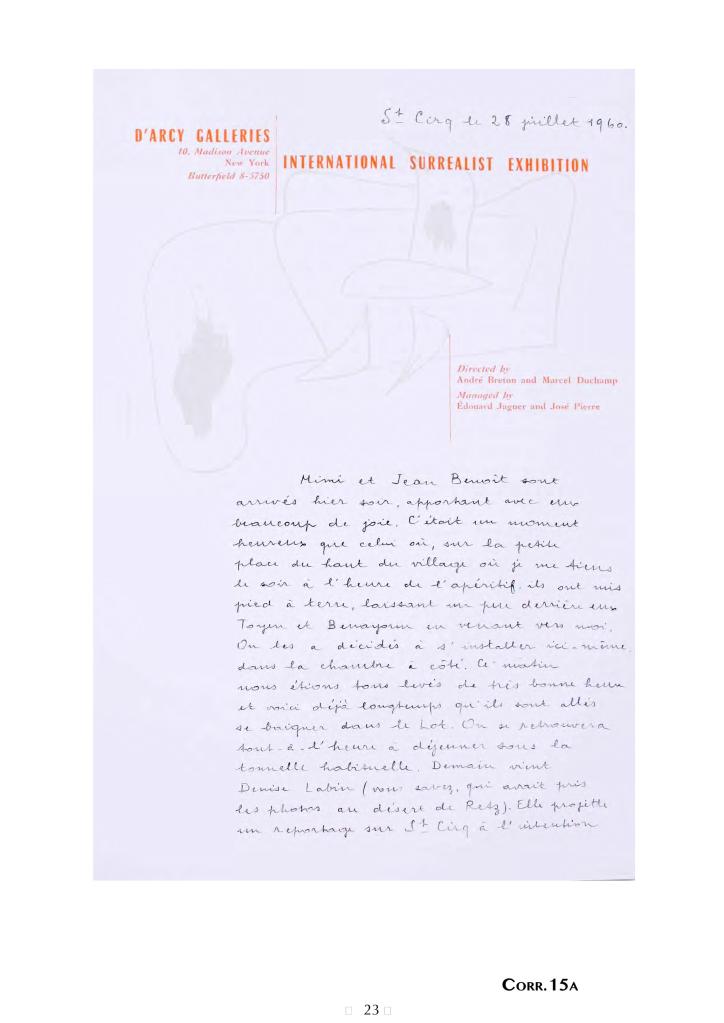 St Cirq le 28 juillet 1960.
D'ARCY GALLERIES
10, Madison Avenue
New York
Butterfield 8-5750
INTERNATIONAL SURREALIST EXHIBITION
Directed by
André Breton and Marcel Duchamp
Managed by
Édouard Jaguer and José Pierre
Mimi et Jean Benoît sont
arrivés hier soir, apportant avec eux
beaucoup de joie. C'était un moment
heureux que celui où, sur la petite
place du haut du village où je me tiens
le soir à l'heure de l'apéritif, ils ont mis
pied à terre, laissant un peu derrière eux
Toyen et Benayoun en venant vers moi.
On les a décidés à s'installer ici-même,
dans la chambre à côté. Ce matin
nous étions tous levés de très bonne heure
et voici déjà longtemps qu'ils sont allés
se baigner dans le Lot. On se retrouvera
tout-à-l'heure à déjeuner sous la
tonnelle habituelle. Demain vient
Denise Labin (vous savez, qui avait pris
les photos au désert de Retz). Elle projette
un reportage sur St Cirq à l'intention
CORR.15A
23